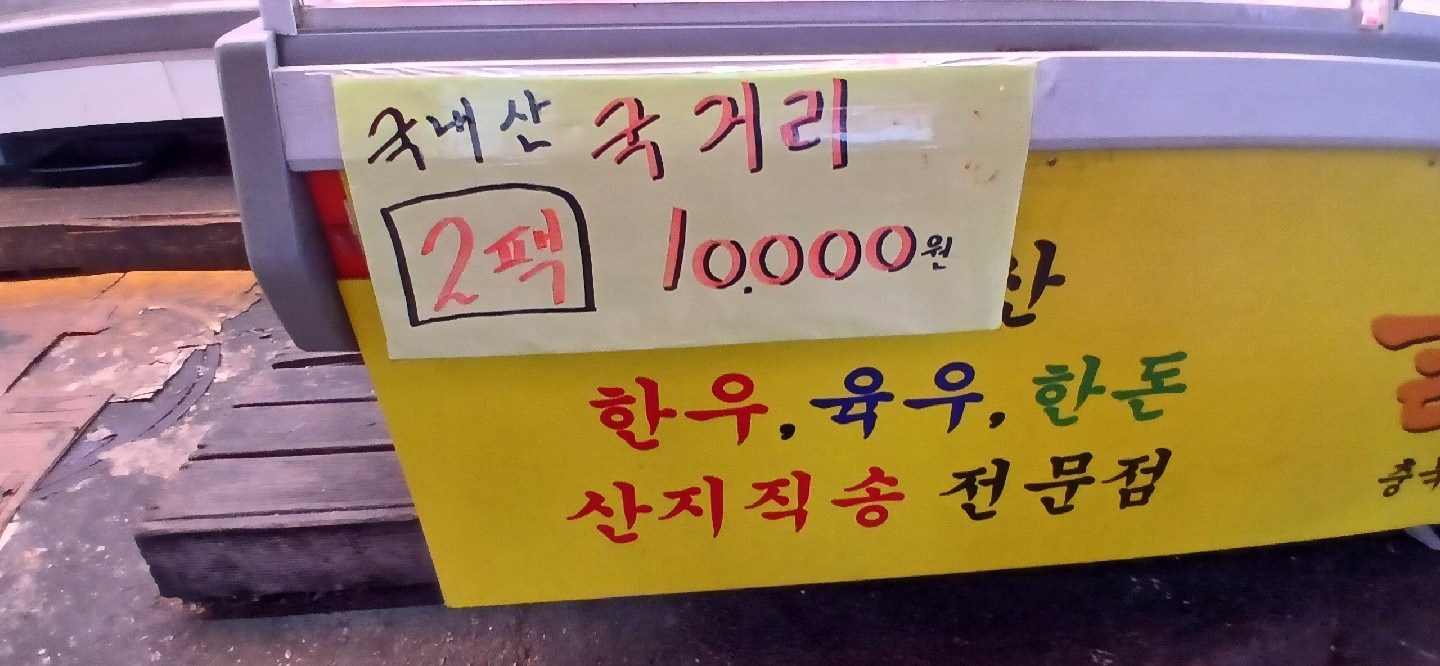 국내산 국거리
2팩 10.000원
한우, 육우, 한돈
산지직송 전문점